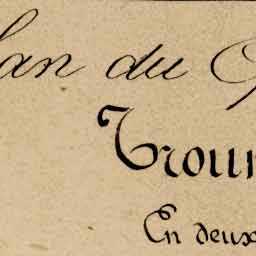 lan du
Trour
En deux